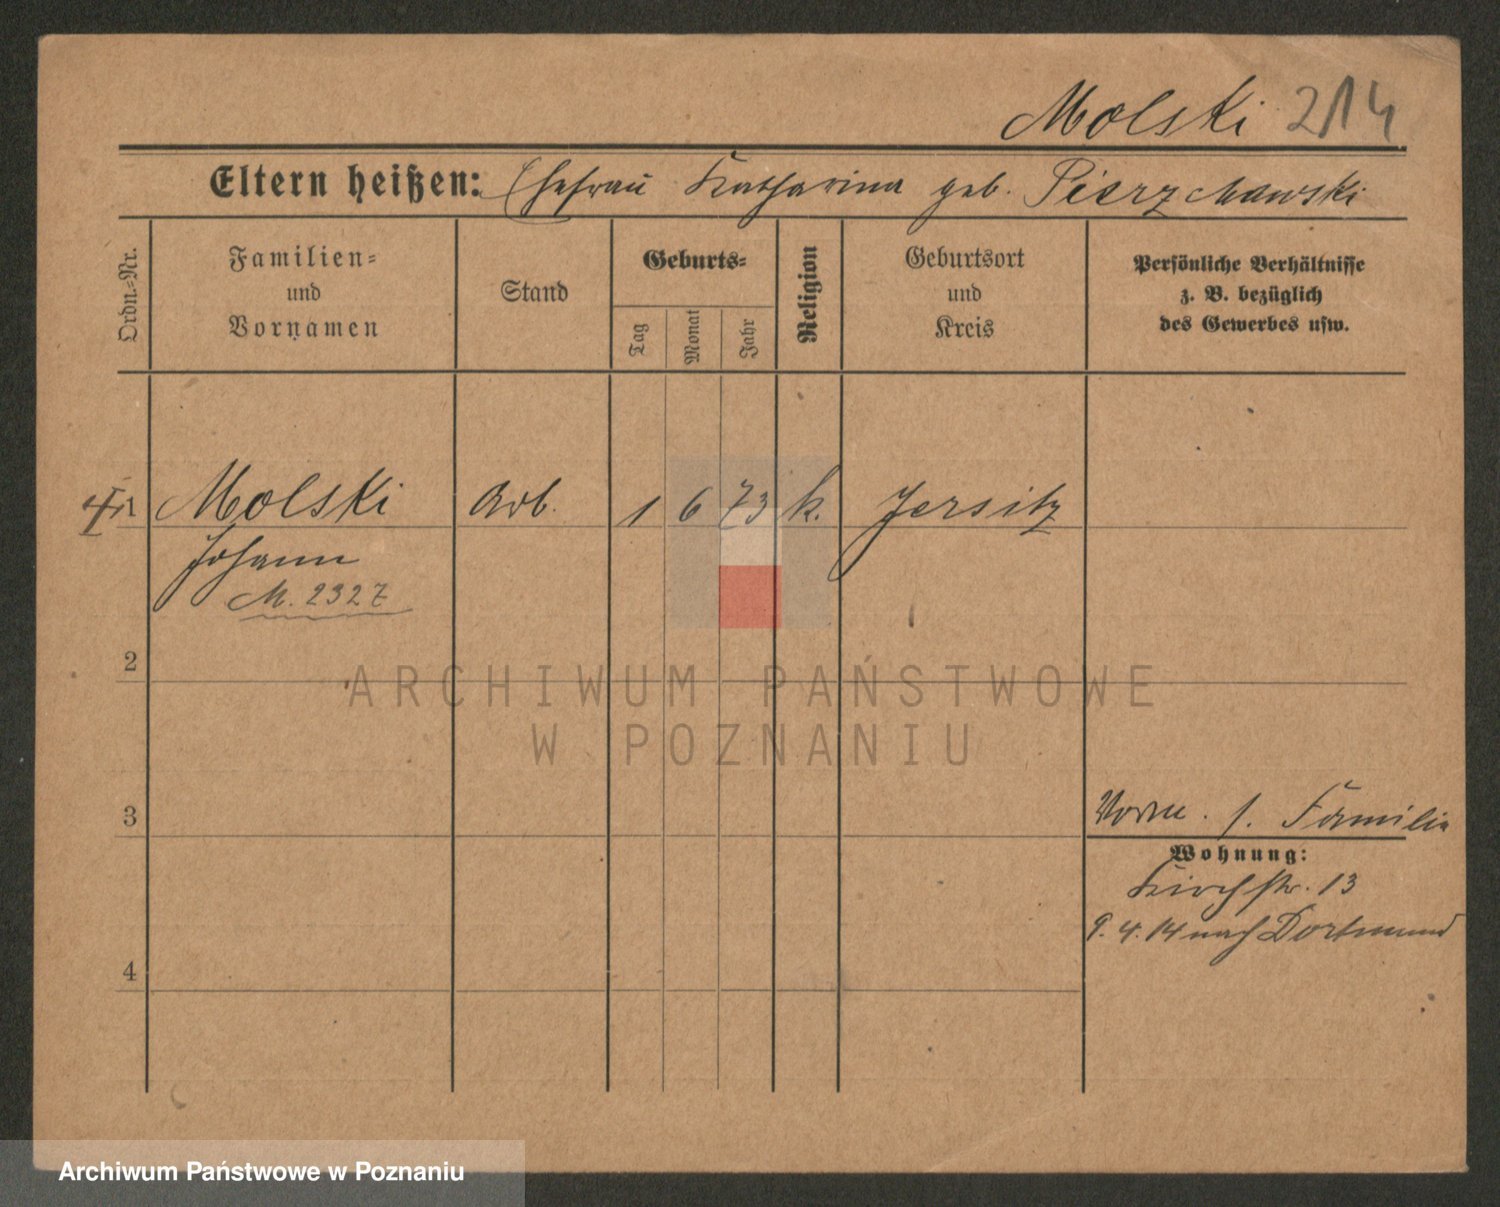 Molski 214
Eltern heißen: Ehefrau Katharina geb. Pierzchawski
Ordn.-Nr.
Familien-
und
Vornamen
Stand
Geburts-
Tag
Monat
Jahr
Religion
Geburtsort
und
Kreis
Persönliche Verhältnisse
z. B. bezüglich
des Gewerbes usw.
Molski Arb. 1 6 73 k. Jersitz
Johann
M. 2327
2
ARCHIWUM PAŃSTWOWE
W POZNANIU
3
f. Familie
Wohnung:
Kirchstr. 13
9. 4. 14 nach Dortmund
4
Archiwum Państwowe w Poznaniu